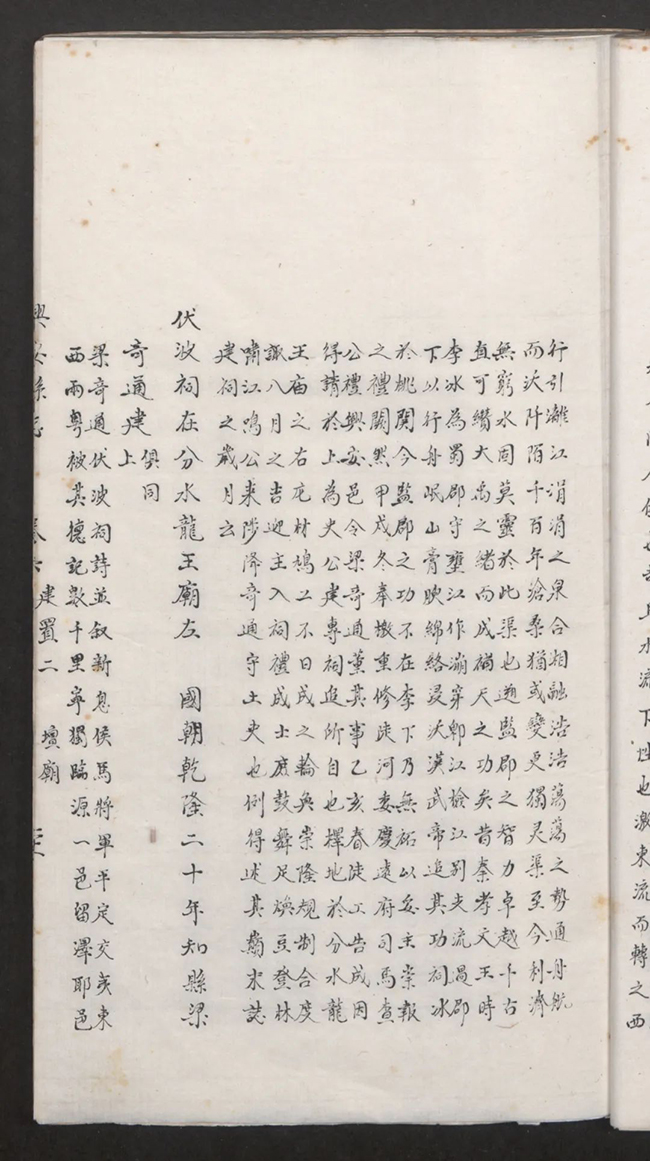 水流下性也激東流而轉之西
行引灕江涓涓之泉合相融浩浩蕩蕩之勢通舟航
而沃阡陌千百年滄桑猶或變更獨灵渠至今利濟
無窮水固莫靈於此渠也遡監郡之智力卓越千古
直可纘大禹之緒而成補天之功矣昔秦孝文王時
李冰為蜀郡守壅江作堋穿郫江檢江別支流過郡
下以行舟岷山膏腴綿絡浸沃漢武帝追其功祠冰
於桃関今監郡之功不在李下乃無祏以妥主崇報
之禮闕然甲戍冬奉檄重修陡河委慶遠府司馬查
公禮興安邑令梁奇通董其事乙亥春陡工告成因
得請於上為史公建專祠追所自也擇地於分水龍
王庙之右庀材鳩工不日成之輪奐崇隆規制合度
諏八月之吉迎主入祠禮成士庶鼓舞足煥豆登林
嘯江鳴公来陟降奇通守土吏也例得述其末誌
建祠之歲月云
伏波祠在分水龍王廟左 國朝乾隆二十年知縣梁
奇通建俱同上
梁奇通伏波祠詩並叙新息侯馬將軍平定交夷東
西兩粵被其德記數千里寧獨臨源一邑留澤耶邑
興安縣志 卷六 建置二 壇廟